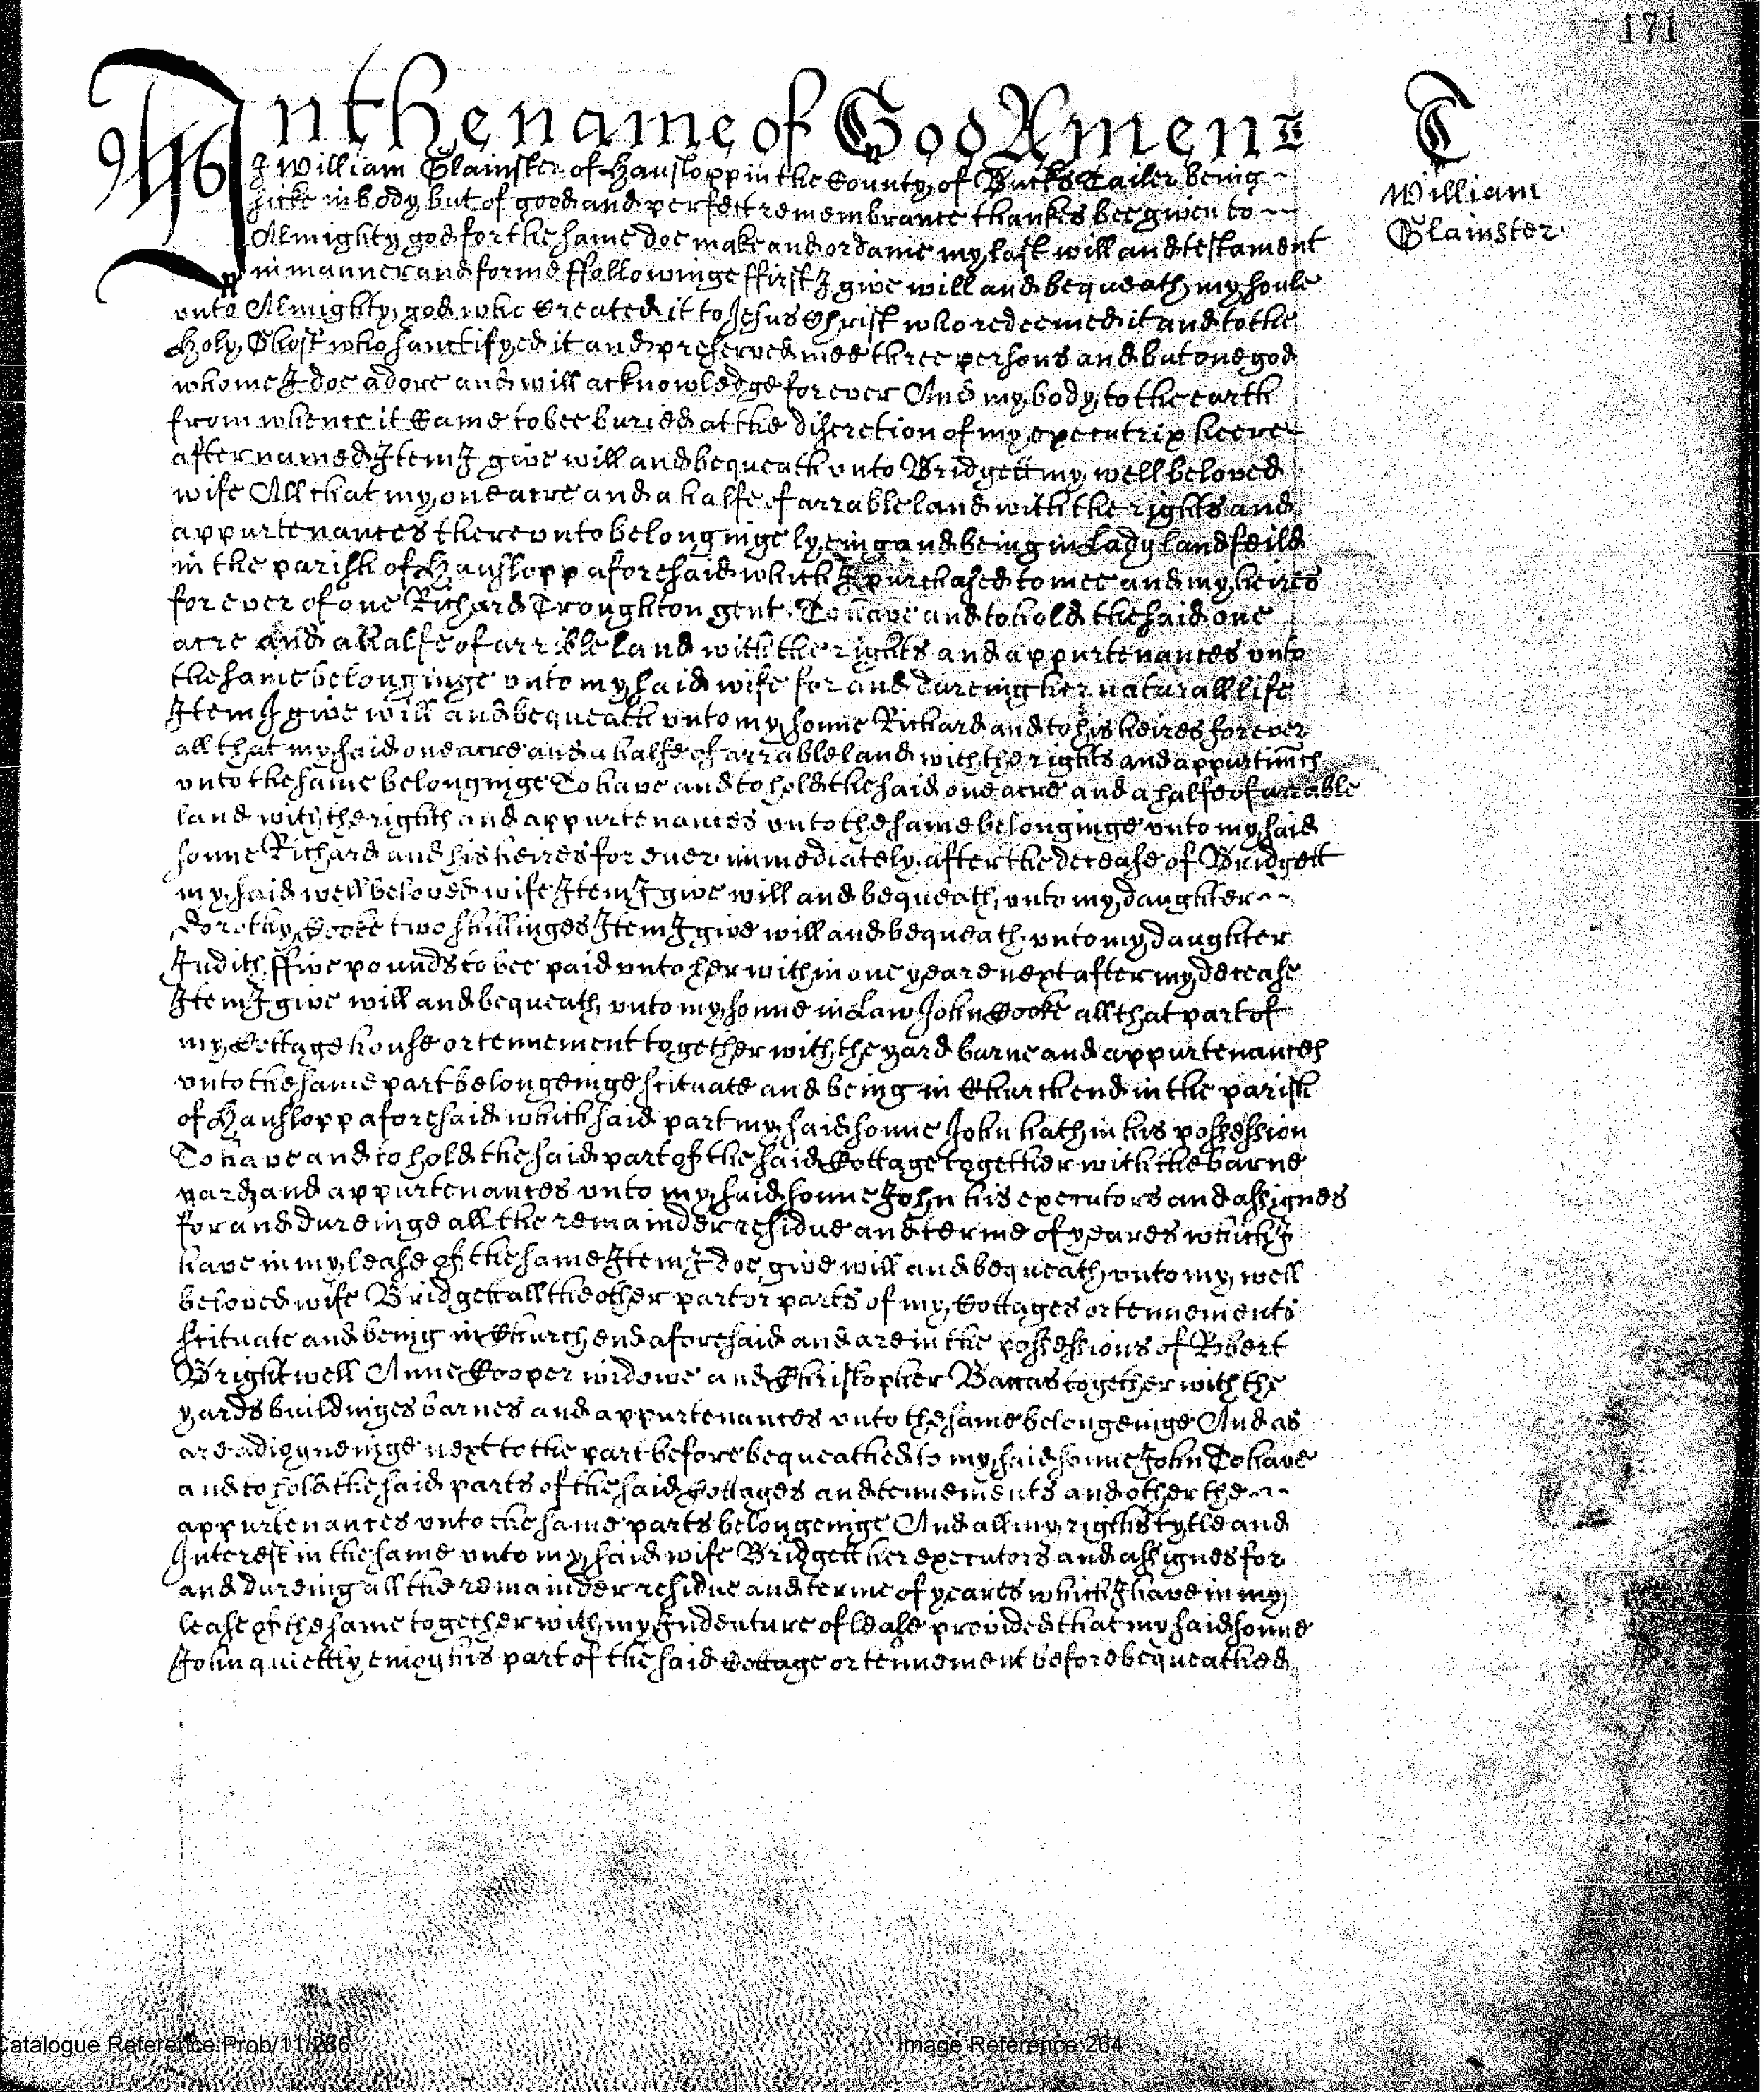 171
In the name of God Amen
T
I William Glainster of Hanslopp in the County of Bucks Tailer being
William
sicke in body but of good and perfect remembrance thankes bee given to
Glainster
Almighty god for the same doe make and ordaine my last will and testament
in manner and forme ffollowinge ffirst I give will and bequeath my soule
unto Almighty god who Created it to Jesus Christ who redeemed it and to the
Holy Ghost who sanctifyed it and preserved mee three persons and but one god
whome I doe adore and will acknowledge for ever And my body to the earth
from whence it Came to bee buried at the discretion of my executrix heere
after named Item I give will and bequeath unto Bridgett my well beloved
wife All that my one acre and a halfe of arrable land with the rights and
appurtenances thereunto belonginge lyeing and being in Lady land feild
in the parish of Hanslopp aforesaid which I purchased to mee and my heires
for ever of one Richard Troughton gent. To have and to hold the said one
acre and a halfe of arrible land with the rights and appurtenances unto
the same belonginge unto my said wife for and dureing her naturall life
Item I give will and bequeath unto my sonne Richard and to his heires for ever
all that my said one acre and a halfe of arrable land with the rights and appurtinncs
unto the same belonginge To have and to hold the said one acre and a halfe of arrable
land with the rights and appurtenances unto the same belonginge unto my said
sonne Richard and his heires for ever immediately after the decease of Bridgett
my said well beloved wife Item I give will and bequeath unto my daughter
Dorothy Cooke two shillinges Item I give will and bequeath unto my daughter
Judith ffive pounds to bee paid unto her within one yeare next after my decease
Item I give will and bequeath unto my sonne in Law John Cooke all that part of
my Cottage house or tennement together with the yard barne and appurtenances
unto the same part belongeinge scituate and being in Church end in the parish
of Hanslopp aforesaid which said part my said sonne John hath in his possession
To have and to hold the said part of the said Cottage together with the barne
yard and appurtenances unto my said sonne John his executors and assignes
for and dureinge all the remainder residue and terme of yeares which I
have in my lease of the same Item I doe give will and bequeath unto my well
beloved wife Bridgett all the other part or parts of my Cottages or tennements
scituate and being in Church end aforesaid and are in the possessions of Robert
Brightwell Anne Cooper widowe and Christopher together with the
yards buildinges barnes and appurtenances unto the same belongeinge And as
are adioyneinge next to the part before bequeathed to my said sonne John To have
and to hold the said parts of the said Cottages and tennements and other the
appurtenances unto the same parts belongeinge And all my rights tytle and
Interest in the same unto my said wife Bridgett her executors and assignes for
and dureing all the remainder residue and terme of yeares which I have in my
lease of the same together with my Indenture of lease provided that my said sonne
John quiettly enioy his part of the said Cottage or tennement before bequeathed
Catalogue Reference:Prob/11/286
Image Reference:264